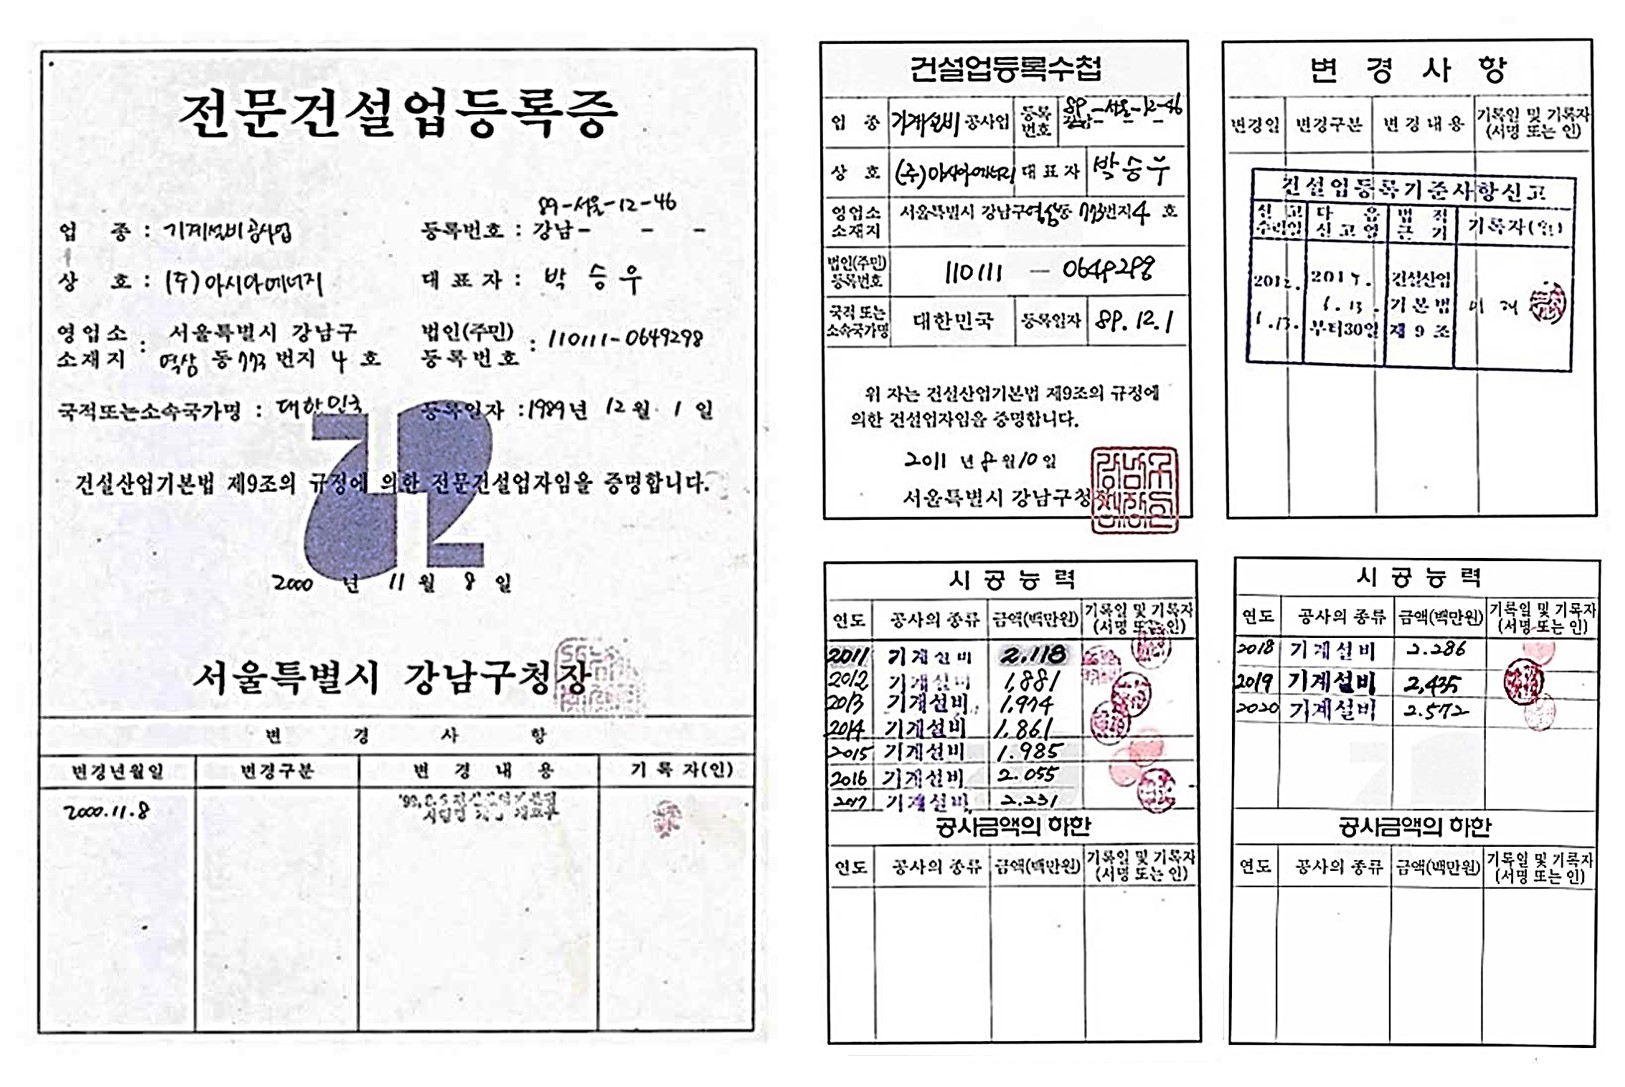 전문건설업등록증
89-서울-12-46
업 종 : 기계설비공사업 등록번호 : 강남- - -
상 호 : (주)아시아에너지 대표자 : 박승우
영업소 소재지 : 서울특별시 강남구
역삼동 773번지 4호
법인(주민)등록번호 : 110111-0649298
국적또는소속국가명 : 대한민국 등록일자 : 1989년 12월 1일
건설산업기본법 제9조의 규정에 의한 전문건설업자임을 증명합니다.
2000년 11월 8일
서울특별시 강남구청장
변 경 사 항
변경년월일 변경구분 변 경 내 용 기 록 자(인)
2000.11.8
건설업등록수첩
업 종 기계설비공사업 등록번호 89-서울-12-46
강남- - -
상 호 (주)아시아에너지 대표자 박승우
영업소 소재지 서울특별시 강남구역삼동 773번지4 호
법인(주민)등록번호 110111 - 0649298
국적 또는 소속국가명 대한민국 등록일자 89.12.1
위 자는 건설산업기본법 제9조의 규정에
의한 건설업자임을 증명합니다.
2011년 8월 10일
서울특별시 강남구청장
변 경 사 항
변경일 변경구분 변경내용 기록일 및 기록자(서명 또는 인)
건설업등록기준사항신고
신 고 수리일 다 음 신고일 법 적 근 기 기록자(인)
2012. 201 . 건설산업
6.13. 6.13. 기본법
부터30일 제9조
시공능력
연도 공사의 종류 금액(백만원) 기록일 및 기록자(서명 또는 인)
2011 기계설비 2,118
2012 기계설비 1,881
2013 기계설비 1,974
2014 기계설비 1,861
2015 기계설비 1.985
2016 기계설비 2.055
2017 기계설비 2.231
공사금액의 하한
연도 공사의 종류 금액(백만원) 기록일 및 기록자(서명 또는 인)
시공능력
연도 공사의 종류 금액(백만원) 기록일 및 기록자(서명 또는 인)
2018 기계설비 2.286
2019 기계설비 2,435
2020 기계설비 2.572
공사금액의 하한
연도 공사의 종류 금액(백만원) 기록일 및 기록자(서명 또는 인)